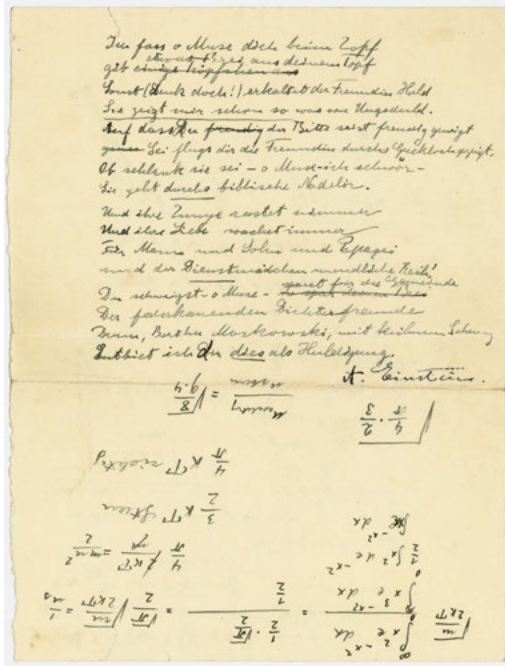 Ich fass o Muse dich beim Zopf
etwas aus deinem Topf
gib einige
Sonst (denk doch!) erkaltet der Freundin Huld
Sie zeigt mir schon so was wie Ungeduld.
Auf dass Du der Bitte seist freudig geneigt
Sei flugs dir die Freundin durchs Guckloch gezeigt.
Ob schlank sie sei – o Muse – ich schwör' –
Sie geht durchs biblische Nadelör.
Und ihre Zunge rastet nimmer
Und ihre Liebe wachet immer
Für Mann und Sohn und Papagei
und der Dienstmädchen unendliche Reih'
Du schweigst – o Muse – für die Gemeinde
Der federkauenden Dichterfreunde
Drum, Bertha Moskowski, mit kühnem Schwung
Entbiet ich Dir dies als Huldigung.
A. Einstein.
= √8
9.4
4/π · 2/3
4/π κT richtig
3/2 κT
4/π 2κT/m = m u²/2
√m/2κT
∫ x² e^-x² dx
∫ x³ e^-x² dx
= 1/2 · √π/2
1/2
= √π/2 √m/2κT = 1/